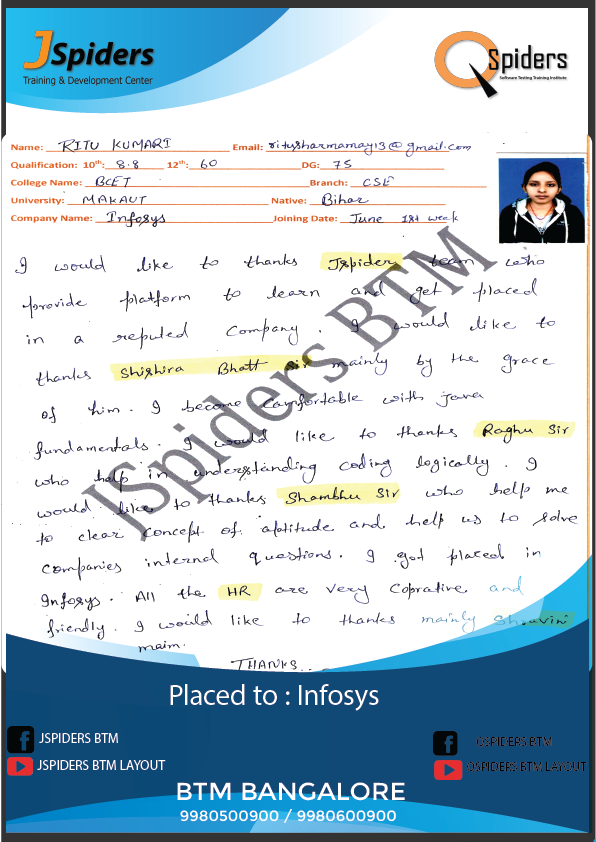 JSpiders
Training & Development Center
QSpiders
Software Testing Training Institute
Name: RITU KUMARI Email: ritusharmamay13@gmail.com
Qualification: 10th: 8.8 12th: 60 DG: 75
College Name: BCET Branch: CSE
University: MAKAUT Native: Bihar
Company Name: Infosys Joining Date: June 1st week
I would like to thanks Jspider team who
provide platform to learn and get placed
in a reputed Company. I would like to
thanks Shishira Bhatt sir mainly by the grace
of him. I become Comfortable with java
fundamentals. I would like to thanks Raghu Sir
who help in understanding coding logically. I
would like to thanks Shambhu Sir who help me
to clear concept of aptitude and help us to solve
companies internal questions. I got placed in
Infosys. All the HR are very Coprative and
friendly. I would like to thanks mainly Shravini
maim.
THANKS..
JSpiders BTM
Placed to : Infosys
JSPIDERS BTM
QSPIDERS BTM
JSPIDERS BTM LAYOUT
QSPIDERS BTM LAYOUT
BTM BANGALORE
9980500900 / 9980600900